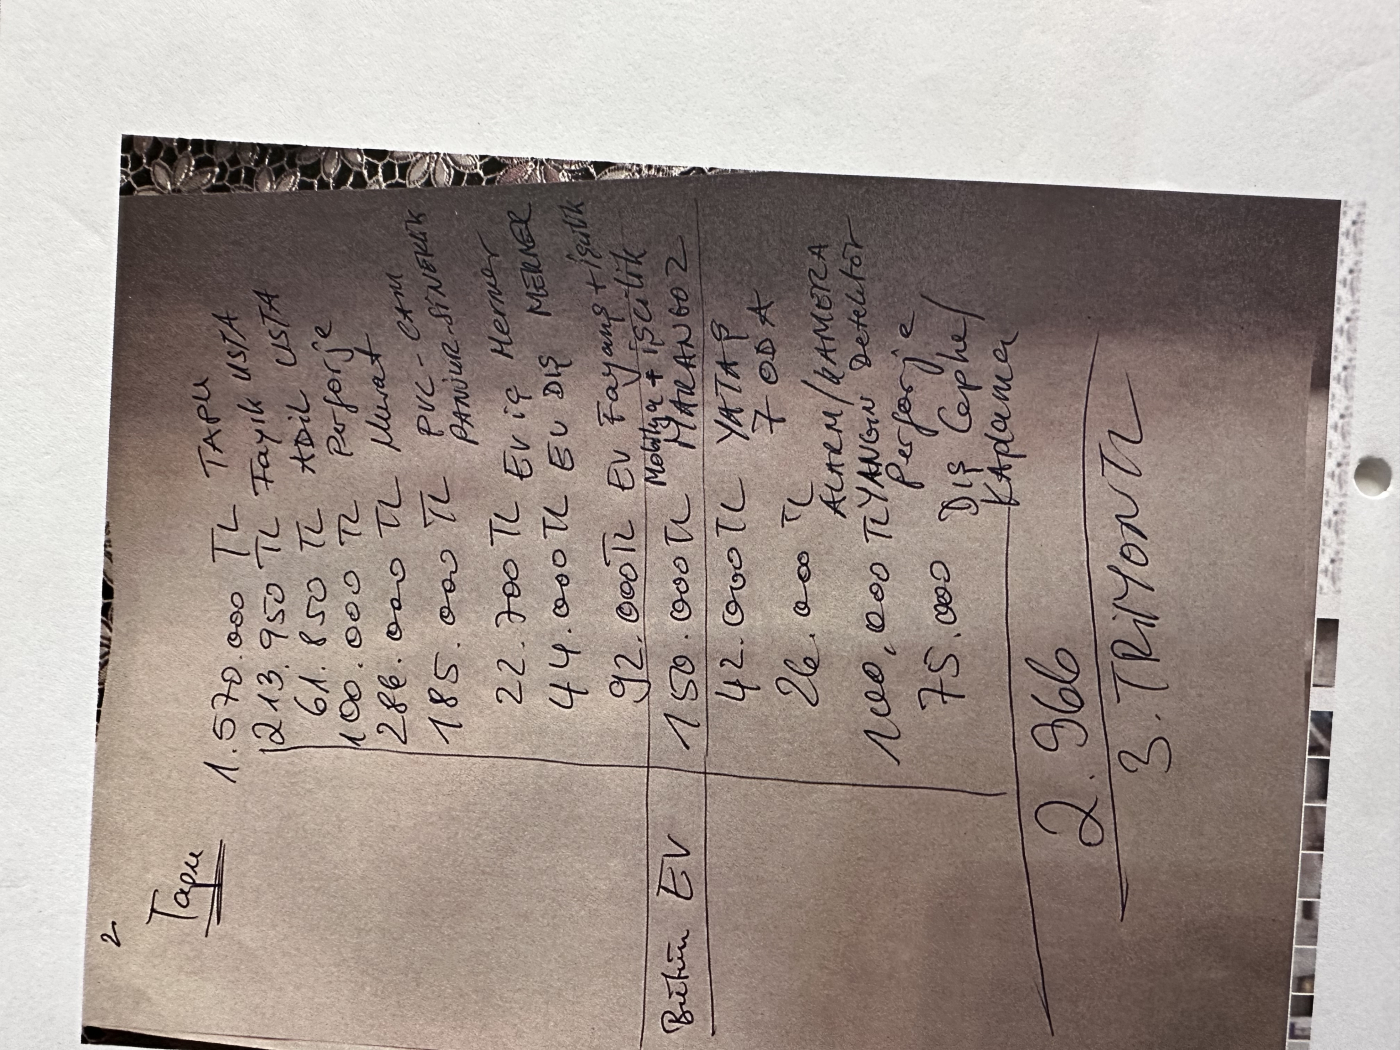 2
Tapu
1.570.000 TL TAPU
213.950 TL Fayık USTA
61.850 TL ADİL USTA
100.000 TL Perforje
286.000 TL Murat
185.000 TL PVC-CAM
PANJUR-SİNEKLİK
22.700 TL EV iç Mermer
44.000 TL EV DIŞ MERMER
92.000 TL EV Fayans + işçilik
Mobilya + işçilik
Bütün EV 150.000 TL MARANGOZ
42.000 TL YATAŞ
7 ODA
26.000 TL ALARM/KAMERA
YANGIN Detektör
100.000 TL Perforje
75.000 DIŞ Cephe/
KAPlama
2.966
3.TRİLYON TL